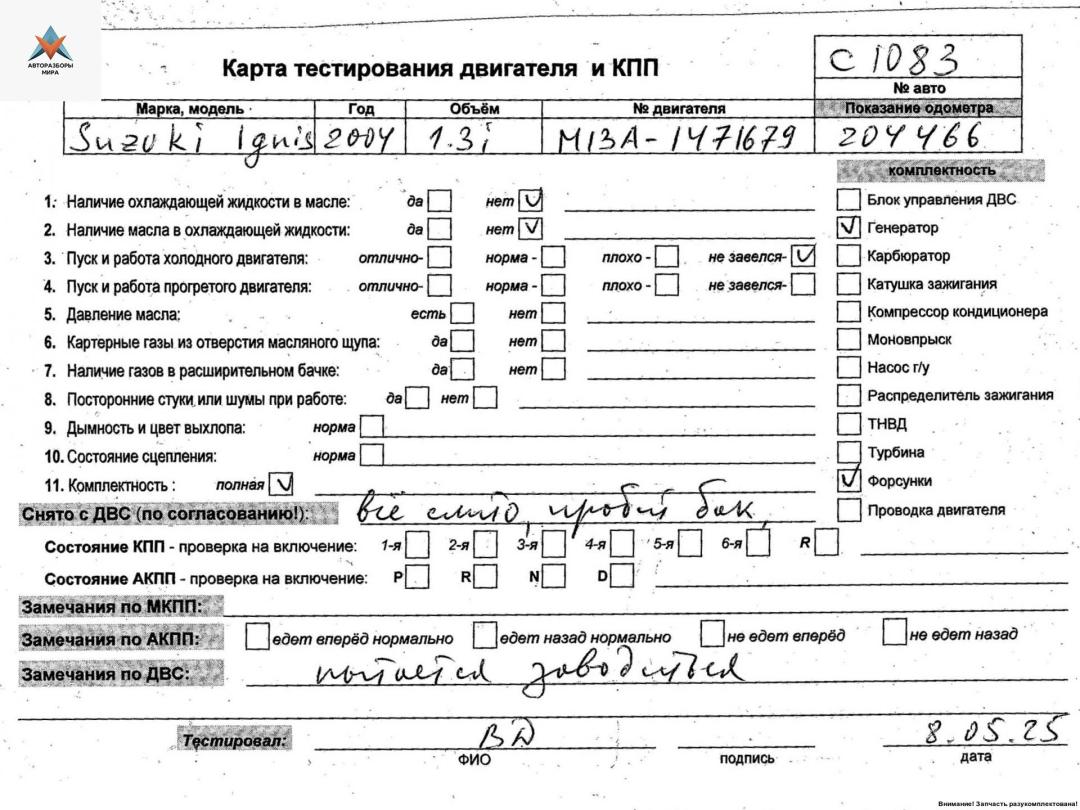 АВТОРАЗБОРЫ
МИРА
Карта тестирования двигателя и КПП
C 1083
№ авто
Марка, модель Год Объём № двигателя Показание одометра
Suzuki Ignis 2004 1.3i M13A-1471679 204466
комплектность
1. Наличие охлаждающей жидкости в масле: да нет Блок управления ДВС
2. Наличие масла в охлаждающей жидкости: да нет Генератор
3. Пуск и работа холодного двигателя: отлично- норма - плохо - не завелся- Карбюратор
4. Пуск и работа прогретого двигателя: отлично- норма - плохо - не завелся- Катушка зажигания
5. Давление масла: есть нет Компрессор кондиционера
6. Картерные газы из отверстия масляного щупа: да нет Моновпрыск
7. Наличие газов в расширительном бачке: да нет Насос г/у
8. Посторонние стуки или шумы при работе: да нет Распределитель зажигания
9. Дымность и цвет выхлопа: норма ТНВД
10. Состояние сцепления: норма Турбина
11. Комплектность : полная Форсунки
Снято с ДВС (по согласованию!): всё слито, пробит бак Проводка двигателя
Состояние КПП - проверка на включение: 1-я 2-я 3-я 4-я 5-я 6-я R
Состояние АКПП - проверка на включение: P R N D
Замечания по МКПП:
Замечания по АКПП: едет вперёд нормально едет назад нормально не едет вперёд не едет назад
Замечания по ДВС: пытается заводиться
Тестировал: ВД 8.05.25
ФИО подпись дата
Внимание! Запчасть разукомплектована!